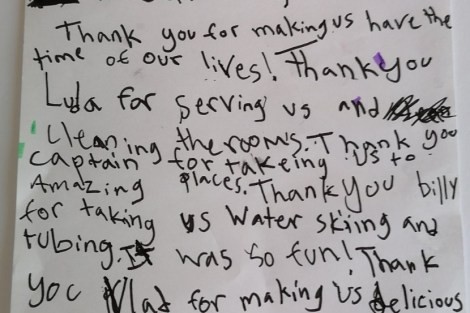 Thank you for making us have the
time of our lives! Thank you
Luda for serving us and
Cleaning the rooms. Thank you
captain for takeing us to
Amazing places. Thank you billy
for taking us water skiing and
tubing. It was so fun! Thank
you Vlad for making us delicious